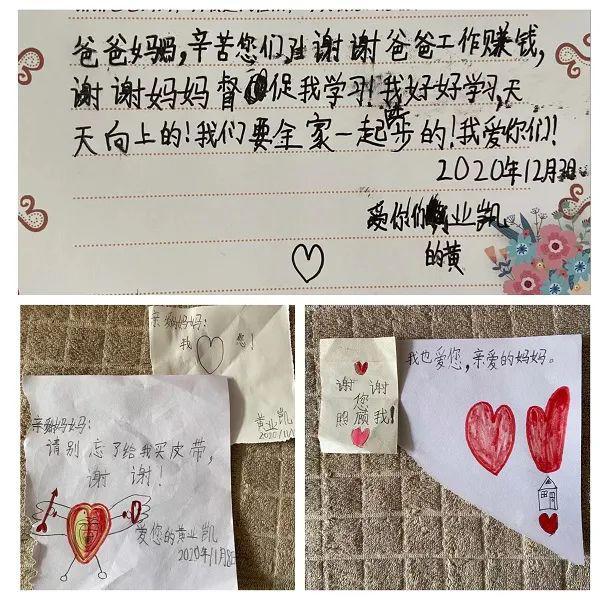 爸爸妈妈,辛苦您们,谢谢爸爸工作赚钱,
谢谢妈妈督促我学习!我好好学习,天
天向上的!我们要全家一起进步的!我爱你们!
2020年12月3日
爱你们的黄业凯
亲爱妈妈:
我 您!
黄业凯
2020/11/
亲爱妈妈:
请别忘了给我买皮带,
谢谢!
爱您的黄业凯
2020年11月8日
谢谢
您
照顾我!
我也爱您,亲爱的妈妈。